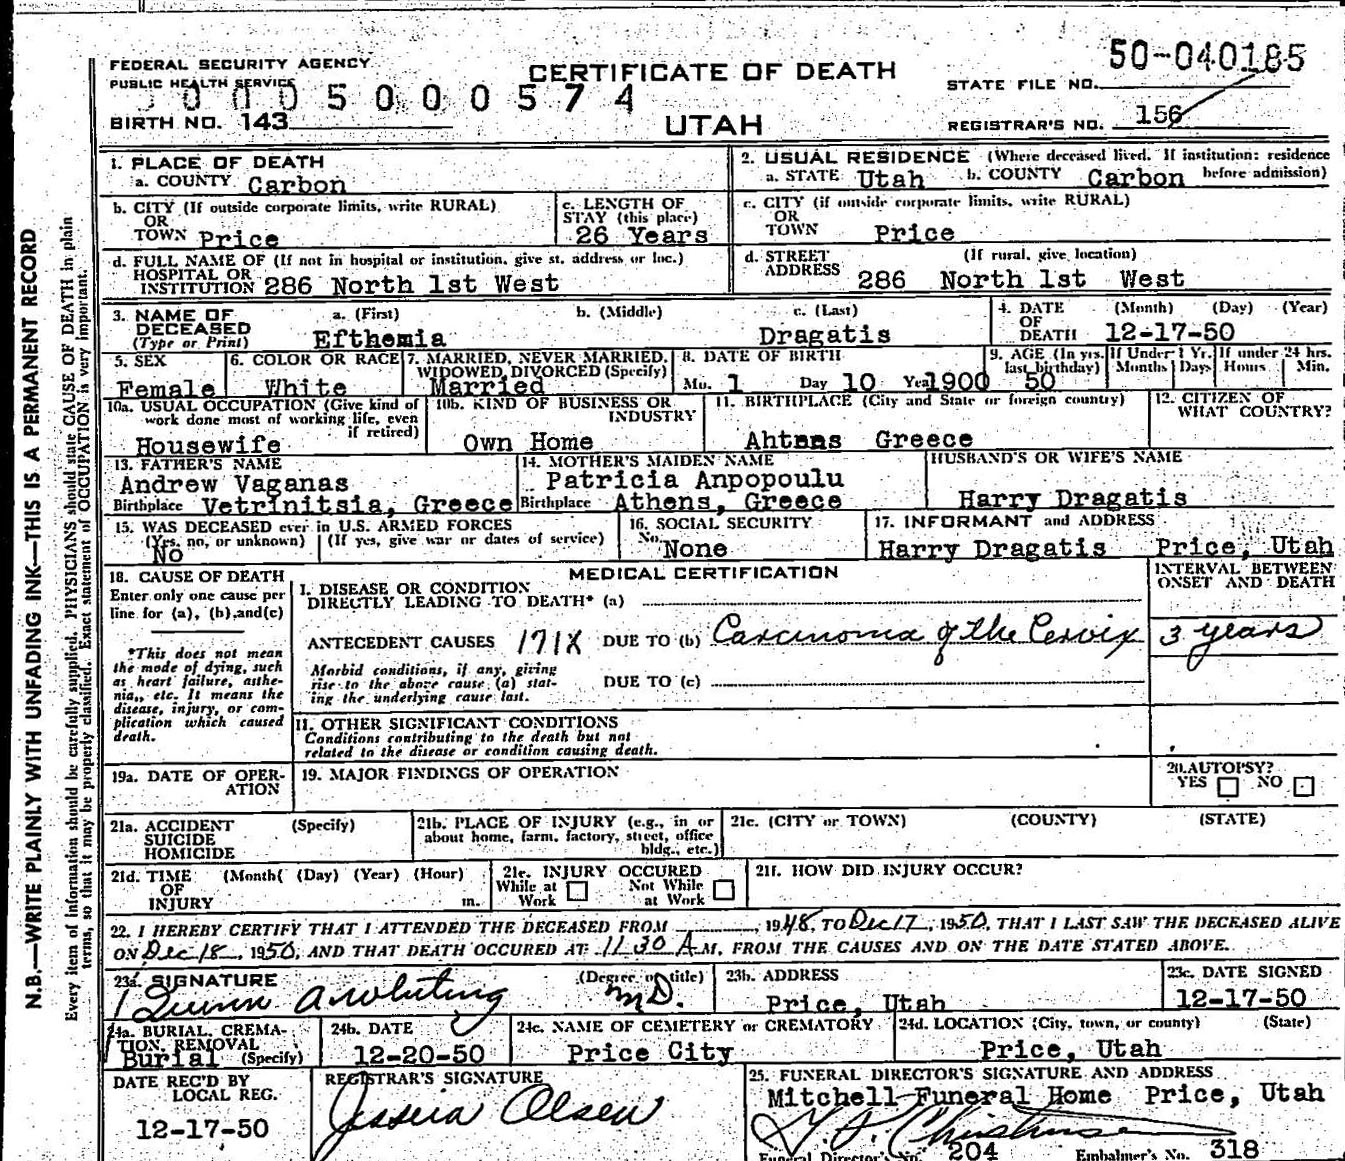 50-040185
FEDERAL SECURITY AGENCY
PUBLIC HEALTH SERVICE
CERTIFICATE OF DEATH
STATE FILE NO.
5 0 0 0 5 7 4
BIRTH NO. 143
UTAH
REGISTRAR'S NO. 156
1. PLACE OF DEATH
a. COUNTY Carbon
2. USUAL RESIDENCE (Where deceased lived. If institution: residence before admission)
a. STATE Utah b. COUNTY Carbon
b. CITY (If outside corporate limits, write RURAL)
OR
TOWN Price
c. LENGTH OF
STAY (this place)
26 Years
c. CITY (if outside corporate limits, write RURAL)
OR
TOWN Price
d. FULL NAME OF (If not in hospital or institution, give st. address or loc.)
HOSPITAL OR
INSTITUTION 286 North 1st West
d. STREET (If rural, give location)
ADDRESS 286 North 1st West
3. NAME OF
DECEASED
(Type or Print)
a. (First) b. (Middle) c. (Last)
Efthemia Dragatis
4. DATE (Month) (Day) (Year)
OF
DEATH 12-17-50
5. SEX
Female
6. COLOR OR RACE
White
7. MARRIED, NEVER MARRIED,
WIDOWED, DIVORCED (Specify)
Married
8. DATE OF BIRTH
Mo. 1 Day 10 Yr. 1900
9. AGE (In yrs.
last birthday)
50
If Under 1 Yr.
Months Days
If under 24 hrs.
Hours Min.
10a. USUAL OCCUPATION (Give kind of
work done most of working life, even
if retired)
Housewife
10b. KIND OF BUSINESS OR
INDUSTRY
Own Home
11. BIRTHPLACE (City and State or foreign country)
Ahtens Greece
12. CITIZEN OF
WHAT COUNTRY?
13. FATHER'S NAME
Andrew Vaganas
Birthplace Vetrinitsia, Greece
14. MOTHER'S MAIDEN NAME
Patricia Anpopoulu
Birthplace Athens, Greece
HUSBAND'S OR WIFE'S NAME
Harry Dragatis
15. WAS DECEASED ever in U.S. ARMED FORCES
(Yrs. no, or unknown) (If yes, give war or dates of service)
No
16. SOCIAL SECURITY
No. None
17. INFORMANT and ADDRESS
Harry Dragatis Price, Utah
18. CAUSE OF DEATH
Enter only one cause per
line for (a), (b), and (c)
*This does not mean
the mode of dying, such
as heart failure, asthe-
nia,, etc. It means the
disease, injury, or com-
plication which caused
death.
MEDICAL CERTIFICATION
INTERVAL BETWEEN
ONSET AND DEATH
I. DISEASE OR CONDITION
DIRECTLY LEADING TO DEATH* (a)
ANTECEDENT CAUSES 171X DUE TO (b) Carcinoma of the Cervix 3 years
Morbid conditions, if any, giving
rise to the above cause (a) stat-
ing the underlying cause last.
DUE TO (c)
II. OTHER SIGNIFICANT CONDITIONS
Conditions contributing to the death but not
related to the disease or condition causing death.
19a. DATE OF OPER-
ATION
19. MAJOR FINDINGS OF OPERATION
20. AUTOPSY?
YES NO
21a. ACCIDENT (Specify)
SUICIDE
HOMICIDE
21b. PLACE OF INJURY (e.g., in or
about home, farm, factory, street, office
bldg., etc.)
21c. (CITY or TOWN) (COUNTY) (STATE)
21d. TIME (Month( (Day) (Year) (Hour)
OF
INJURY m.
21e. INJURY OCCURED
While at Not While
Work at Work
21f. HOW DID INJURY OCCUR?
22. I HEREBY CERTIFY THAT I ATTENDED THE DECEASED FROM , 1948, TO Dec 17, 1950, THAT I LAST SAW THE DECEASED ALIVE
ON Dec 18, 1950, AND THAT DEATH OCCURED AT 11 30 A M, FROM THE CAUSES AND ON THE DATE STATED ABOVE.
23a. SIGNATURE (Degree or title)
MD.
23b. ADDRESS
Price, Utah
23c. DATE SIGNED
12-17-50
24a. BURIAL, CREMA-
TION, REMOVAL
Burial (Specify)
24b. DATE
12-20-50
24c. NAME OF CEMETERY or CREMATORY
Price City
24d. LOCATION (City, town, or county) (State)
Price, Utah
DATE REC'D BY
LOCAL REG.
12-17-50
REGISTRAR'S SIGNATURE
Olsen
25. FUNERAL DIRECTOR'S SIGNATURE AND ADDRESS
Mitchell Funeral Home Price, Utah
Funeral Director's No. 204 Embalmer's No. 318
N.B.—WRITE PLAINLY WITH UNFADING INK—THIS IS A PERMANENT RECORD
Every item of information should be carefully supplied. PHYSICIANS should state CAUSE OF DEATH in plain
terms, so that it may be properly classified. Exact statement of OCCUPATION is very important.